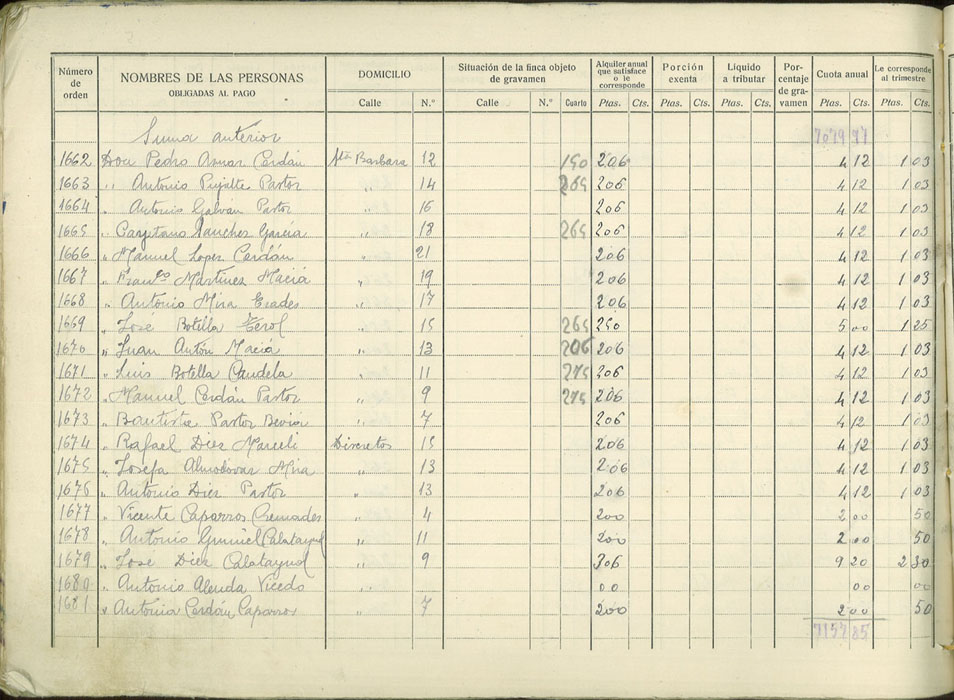 Número de orden | NOMBRES DE LAS PERSONAS OBLIGADAS AL PAGO | DOMICILIO | Situación de la finca objeto de gravamen | Alquiler anual que satisface o le corresponde | Porción exenta | Líquido a tributar | Por-centaje de gra-vamen | Cuota anual | Le corresponde al trimestre
Calle | N.º | Calle | N.º | Cuarto | Ptas. | Cts. | Ptas. | Cts. | Ptas. | Cts. | Ptas. | Cts. | Ptas. | Cts.
Suma anterior 7079 77
1662 Don Pedro Aznar Cerdán Sta Barbara 12 190 206 4 12 1 03
1663 " Antonio Pujalte Pastor " 14 265 206 4 12 1 03
1664 " Antonio Galván Pastor " 16 206 4 12 1 03
1665 " Cayetano Sanchez García " 18 265 206 4 12 1 03
1666 " Manuel Lopez Cerdán " 21 206 4 12 1 03
1667 " Franco Martínez Maciá " 19 206 4 12 1 03
1668 " Antonio Mira Erades " 17 206 4 12 1 03
1669 " José Botella Terol " 15 265 250 5 00 1 25
1670 " Juan Antón Maciá " 13 206 206 4 12 1 03
1671 " Luis Botella Candela " 11 275 206 4 12 1 03
1672 " Manuel Cerdán Pastor " 9 275 206 4 12 1 03
1673 " Bautista Pastor " 7 206 4 12 1 03
1674 " Rafael Diez Marceli Discretos 15 206 4 12 1 03
1675 " Josefa Almodovar Mira " 13 206 4 12 1 03
1676 " Antonio Diez Pastor " 13 206 4 12 1 03
1677 " Vicente Caparros Cremades " 4 200 2 00 50
1678 " Antonio Calatayud " 11 200 2 00 50
1679 " Jose Diez Calatayud " 9 306 9 20 2 30
1680 " Antonio Alenda Vicedo " 00 00 00
1681 " Antonia Cerdán Caparros " 7 200 2 00 50
7157 85